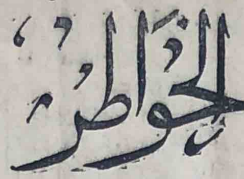 الخواطر